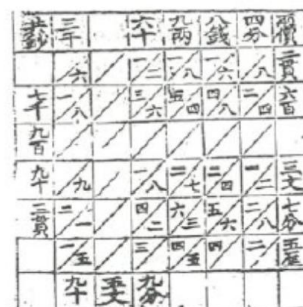 共鈔 三千 六十 九兩 八錢 四分 兩價
六 一二 一八 一六 八 二貫
七千 一八 三六 五四 四八 二四 六百
九百
九十 九 一八 二七 二四 一二 三文
三貫 二一 四二 六三 五六 二八 七分
一五 三 四五 四 二 五厘
九十 五文 九分